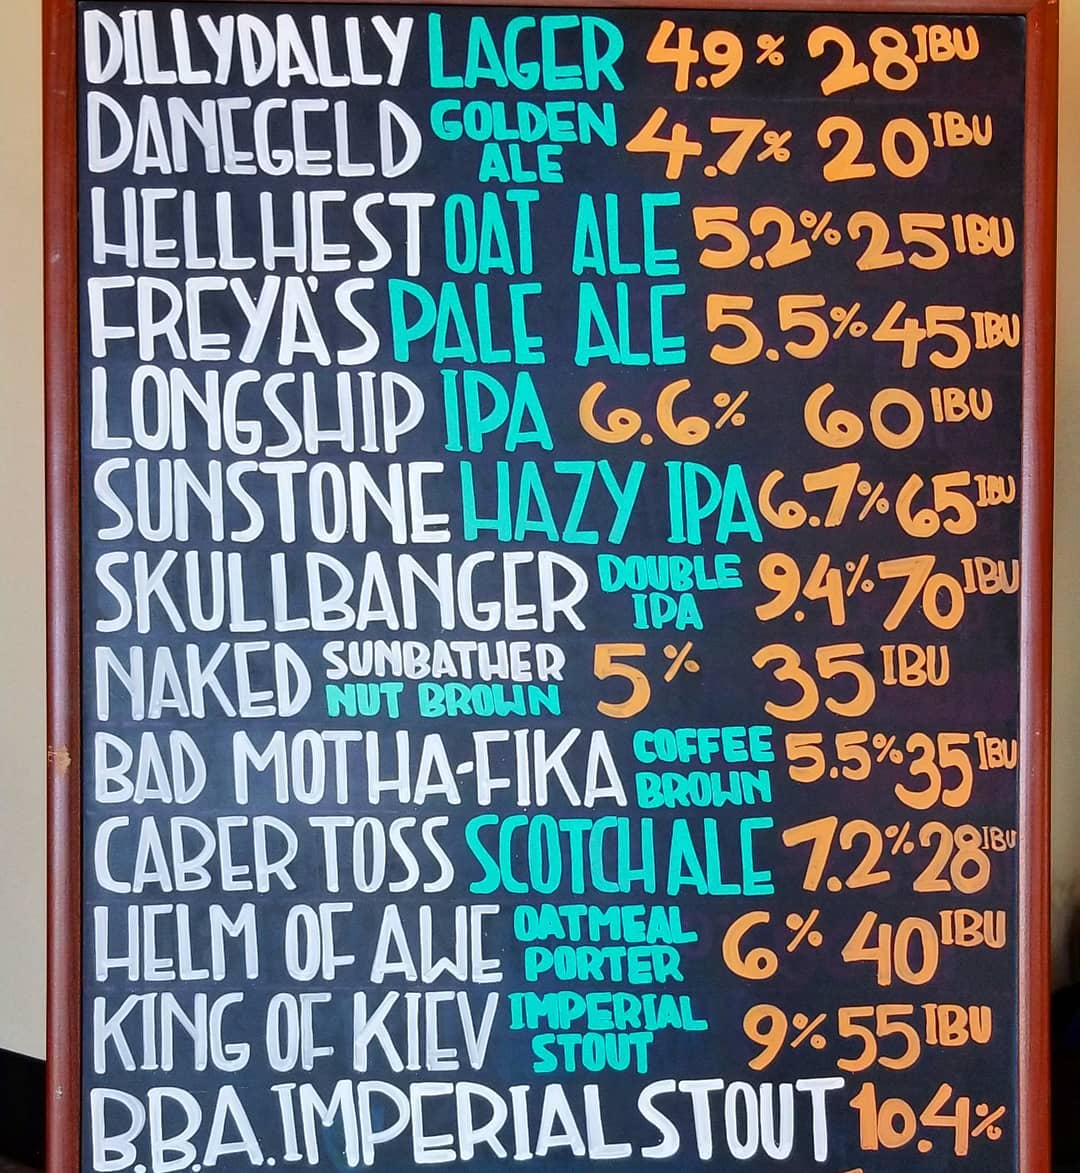 DILLYDALLY LAGER 4.9% 28 IBU
DANEGELD GOLDEN ALE 4.7% 20 IBU
HELLHEST OAT ALE 5.2% 25 IBU
FREYA'S PALE ALE 5.5% 45 IBU
LONGSHIP IPA 6.6% 60 IBU
SUNSTONE HAZY IPA 6.7% 65 IBU
SKULLBANGER DOUBLE IPA 9.4% 70 IBU
NAKED SUNBATHER NUT BROWN 5% 35 IBU
BAD MOTHA-FIKA COFFEE BROWN 5.5% 35 IBU
CABER TOSS SCOTCH ALE 7.2% 28 IBU
HELM OF AWE OATMEAL PORTER 6% 40 IBU
KING OF KIEV IMPERIAL STOUT 9% 55 IBU
B.B.A. IMPERIAL STOUT 10.4%